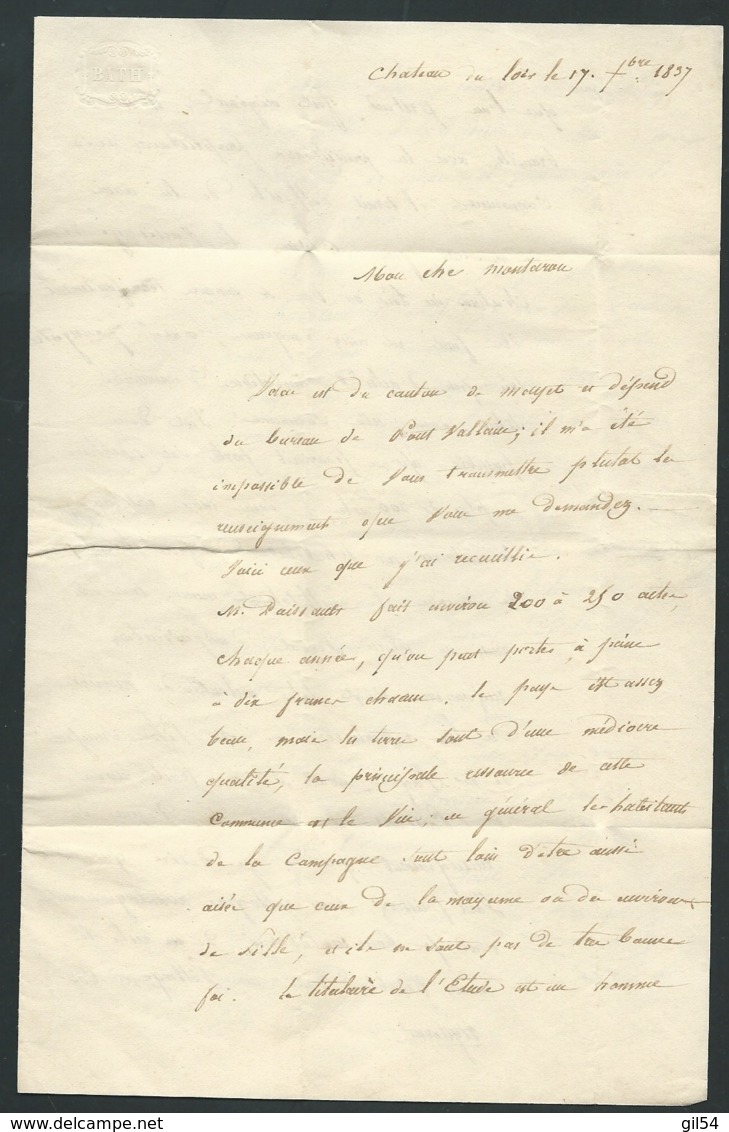 BATH
Chateau du loir le 17. bre 1837
Mon cher Montarou
est du canton de mayet et dépend
du bureau de Pont Vallain; il m'a été
impossible de Vous transmettre plutot les
renseignements que Vous me demandez.
Voici ceux que j'ai recueillis.
M. fait environ 200 à 250 actes,
chaque année, qu'on peut porter à peine
à dix francs chacun. le pays est assez
beau, mais les terres sont d'une médiocre
qualité, la principale ressource de cette
Commune est le Vin; en général les habitants
de la Campagne sont loin d'etre aussi
aisés que ceux de la mayenne ou des environs
de Sillé, et ils ne sont pas de tres bonne
foi. le titulaire de l'Etude est un homme
gil54